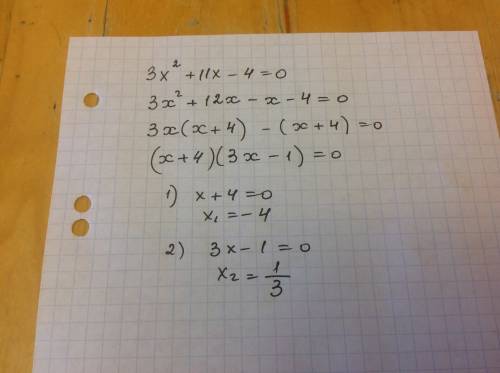 3x² + 11x - 4 = 0
3x² + 12x - x - 4 = 0
3x(x + 4) - (x + 4) = 0
(x + 4)(3x - 1) = 0
1) x + 4 = 0
x₁ = -4
2) 3x - 1 = 0
x₂ = 1/3